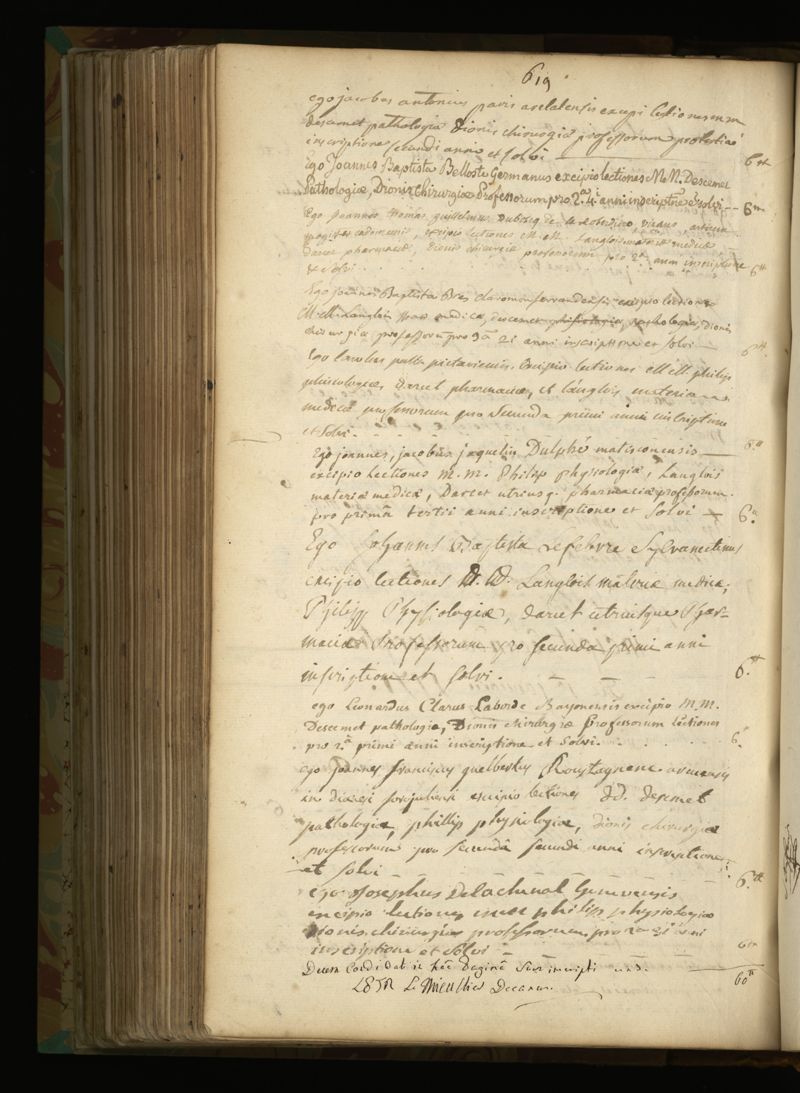 619
ego jacobus antonius paris arelatensis excepi lectiones m m
descemet pathologiæ Dionis chirurgiæ professorum pro tertia
inscriptione secundi anni et solvi — 6 tt
Ego Joannes Baptista Belloste Germanus excipio lectiones M. M. Descemet
Pathologiæ, Dionis Chirurgiæ Professorum pro 2a 4i anni inscriptne et solvi - - 6 tt
Ego Joannes Thomas guillelmus Dubosq de, viræus, artium
magister cadomensis, excipio lectiones M. M. Langlois materiæ medicæ
Darcet pharmaciæ, Dionis chirurgiæ professorum pro 2a anni inscriptione
& solvi . . . 6 tt
Ego joannes Baptista Bres claromonferrandensis excipio lectiones
M. M. Langlois mat medicæ, descemet pathologiæ, dionis
chirurgiæ professorum pro 3a 2i anni inscriptione et solvi — 6 tt
Ego jacobus pictaviensis. Excipio lectiones M M philip
phisiologiæ Darcet pharmaciæ, et langlois materia
medicæ professorum pro secunda primi anni inscriptione
et solvi - - - 6 tt
Ego joannes, jacobus jaquelin Dulphé matisconensis
excipio Lectiones m. m. Philip physiologiæ, Langlois
materiæ medicæ, Darcet utriusq. pharmaciæ professorum.
pro primâ tertii anni inscriptione et solvi — 6 tt
Ego Johannes Baptista Lefebvre Sylvanectensis
excipio lectiones D. D. Langlois materiæ medicæ,
Philipp Physiologiæ, darcet utriusque Phar-
maciæ Professorum pro secunda primi anni
inscriptione et solvi. — — 6. tt
ego Leonardus Clarus Laborde Bayonensis excipio M. M.
Descemet pathologiæ, Dionis chirurgiæ Professorum Lectiones
pro 2.a primi anni inscriptione et solvi. . . . . 6
ego joannes franciscus
in diœcesi forojuliensi excipio lectiones dd. descemet
pathologiæ, phillip physiologiæ, dionis chirurgiæ
professorum pro secundâ secundi anni inscriptione
et solvi — — — 6. tt
ego Josephus Delachenal Genevensis
excipio lectiones mm philipp physiologiæ
Dionis chirurgiæ professorum pro 2a 2i anni
inscriptione et solvi — 6 tt
Decem Candidati in hac Paginâ sunt inscripti
Decanus. 60 tt